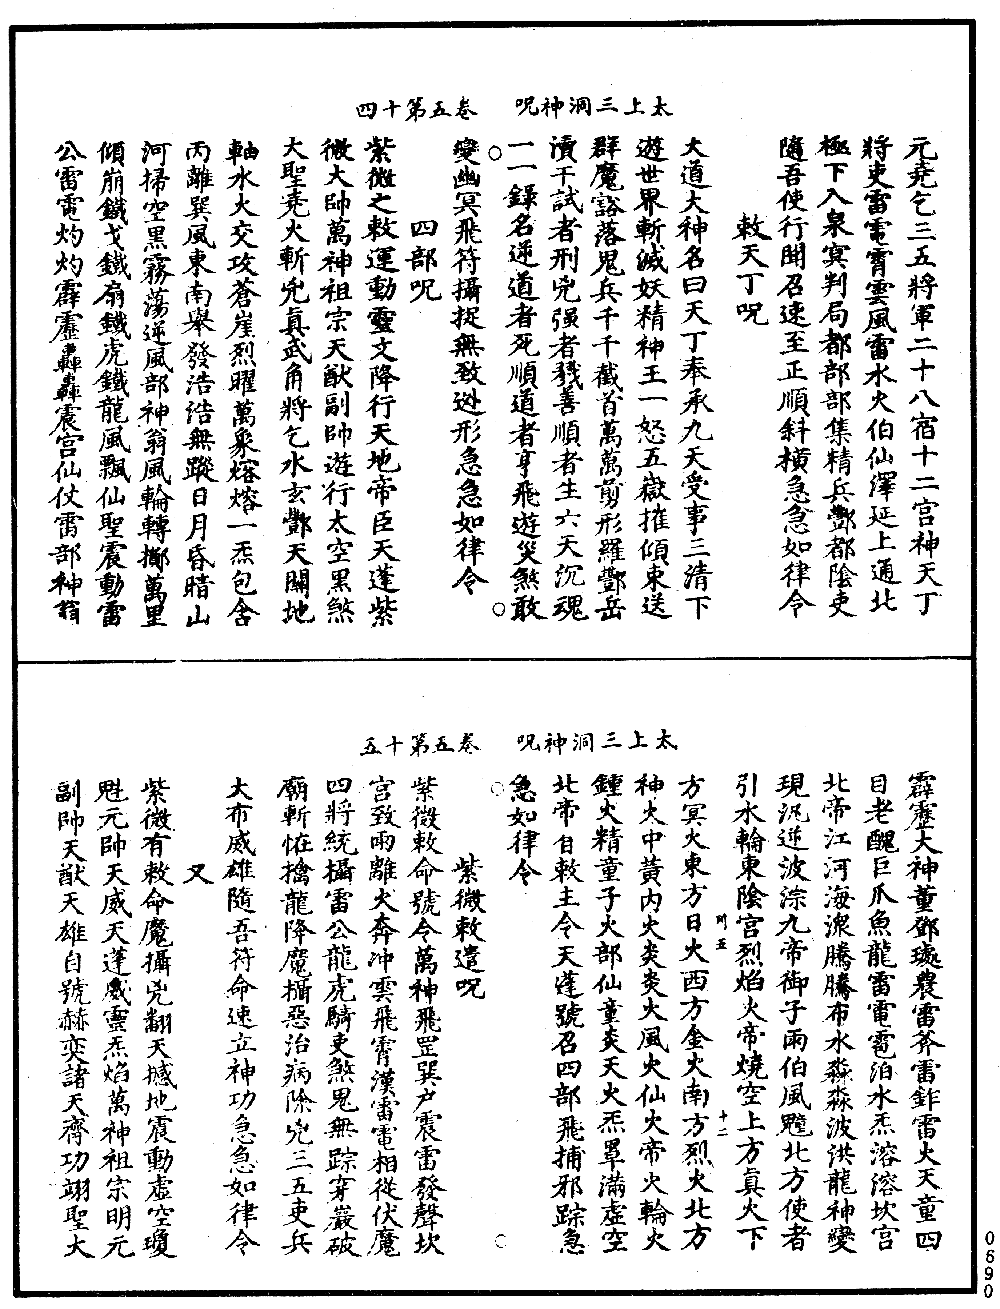 太上三洞神呪　卷五第十四
元堯乞三五將軍二十八宿十二宮神天丁
將吏雷電霄雲風雷水火伯仙澤延上通北
極下入泉冥判局都部部集精兵酆都陰吏
隨吾使行聞召速至正順斜橫急急如律令
敕天丁呪
大道大神名曰天丁奉承九天受事三清下
遊世界斬滅妖精神王一怒五嶽摧傾東送
群魔豁落鬼兵千千截首萬萬剪形羅酆岳
瀆干試者刑兇强者戮善順者生六天沉魂
一一錄名逆道者死順道者亨飛遊災煞敢
變幽冥飛符攝捉無致逃形急急如律令
四部呪
紫微之敕運動靈文降行天地帝臣天蓬紫
微大帥萬神祖宗天猷副帥遊行太空黑煞
大聖堯火斬兇真武角將乞水玄酆天關地
軸水火交攻蒼崖烈曜萬象熔熔一炁包含
丙離巽風東南舉發浩浩無蹤日月昏暗山
河掃空黑霧蕩逆風部神翁風輪轉擲萬里
傾崩鐵戈鐵扇鐵虎鐵龍風飄仙聖震動雷
公雷電灼灼霹靂轟轟震宫仙仗雷部神翁
太上三洞神呪　卷五第十五
霹靂大神董鄧璩農雷斧雷鉡雷火天童四
目老醜巨爪魚龍雷電雹泊水炁溶溶坎宮
北帝江河海漈騰騰布水淼淼波洪龍神變
現泥逆波淙九帝御子雨伯風魒北方使者
引水輪東陰宮烈焰火帝燒空上方真火下
方冥火東方日火西方金火南方烈火北方
神火中黄内火炎炎火風火仙火帝火輪火
鍾火精童子火部仙童炎天火炁罩滿虛空
北帝自敕主令天蓬號召四部飛捕邪踪急
急如律令
紫微敕遣呪
紫微敕命號令萬神飛罡巽户震雷發聲坎
宫致雨離火奔冲雲飛霄漢雷電相從伏魔
四將統攝雷公龍虎騎吏煞鬼無踪穿巖破
廟斬怪擒龍降魔攝惡治病除兇三五吏兵
大布威雄隨吾符命速立神功急急如律令
又
紫微有敕命魔攝兇翻天撼地震動虛空瓊
魁元帥天威天蓬威靈炁焰萬神祖宗明元
副帥天猷天雄自號赫奕諸天齊功翊聖大
十二
0690